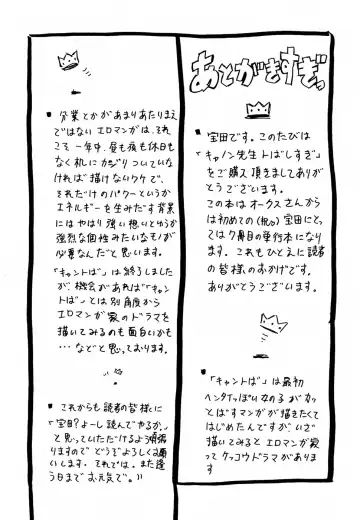 あとがきすぎっ
■宝田です。このたびは
「キャノン先生トばしすぎ」
をご購入頂きましてありが
とうございます。
この本はオークスさんから
は初めての(祝)宝田にとっ
ては7冊目の単行本になり
ます。これもひとえに読者
の皆様のおかげです。
ありがとうございます。
■「キャントば」は最初
ヘンタイっぽい女の子がカッ
とばすマンガが描きたくて
はじめたんですが、いざ
描いてみるとエロマンガ家っ
てケッコウドラマがありま
す
■分業とかがあまりあたりまえ
ではないエロマンガは、それ
こそ一年中、昼も夜も休日も
なく机にカジりついていな
ければ描けないワケで、
それだけのパワーというか
エネルギーを生みだす背景
にはやはり強い想いとゆうか
強烈な個性みたいなモノが
必要なんだと思います。
「キャントば」は終了しました
が、機会があれば「キャン
トば」とは別角度から
エロマンガ家のドラマを
描いてみるのも面白いかも
…などと思っております。
■これからも読者の皆様に
「宝田?よーし読んでやるか。」
と思っていただけるよう頑張
りますのでどうぞよろしくお願
いします。それでは。また逢
う日までお元気で。